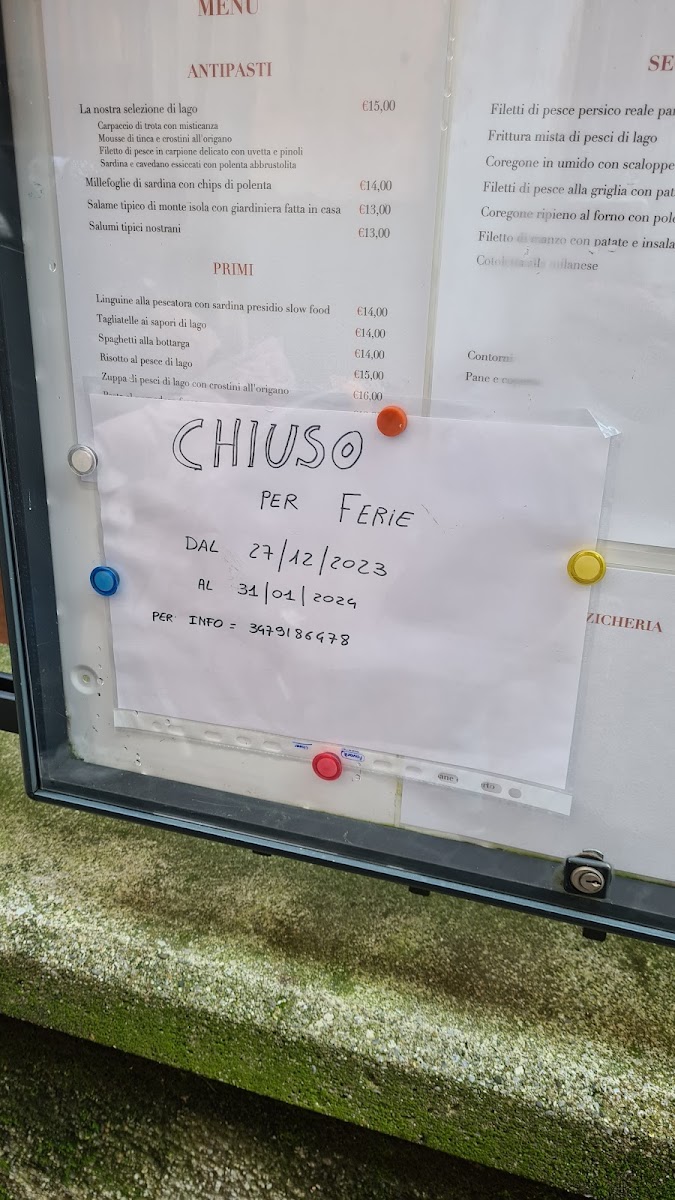 MENU
ANTIPASTI
La nostra selezione di lago €15,00
Carpaccio di trota con misticanza
Mousse di tinca e crostini all'origano
Filetto di pesce in carpione delicato con uvetta e pinoli
Sardina e cavedano essiccati con polenta abbrustolita
Millefoglie di sardina con chips di polenta €14,00
Salame tipico di monte isola con giardiniera fatta in casa €13,00
Salumi tipici nostrani €13,00
PRIMI
Linguine alla pescatora con sardina presidio slow food €14,00
Tagliatelle ai sapori di lago €14,00
Spaghetti alla bottarga €14,00
Risotto al pesce di lago €15,00
Zuppa di pesci di lago con crostini all'origano €16,00
SE
Filetti di pesce persico reale
Frittura mista di pesci di lago
Coregone in umido con scaloppe
Filetti di pesce alla griglia con
Coregone ripieno al forno con
Filetto di manzo con patate e
Cotoletta alla milanese
Contorni
Pane e
ZICHERIA
CHIUSO
PER FERIE
DAL 27/12/2023
AL 31/01/2024
PER INFO = 3479186478
Favorit